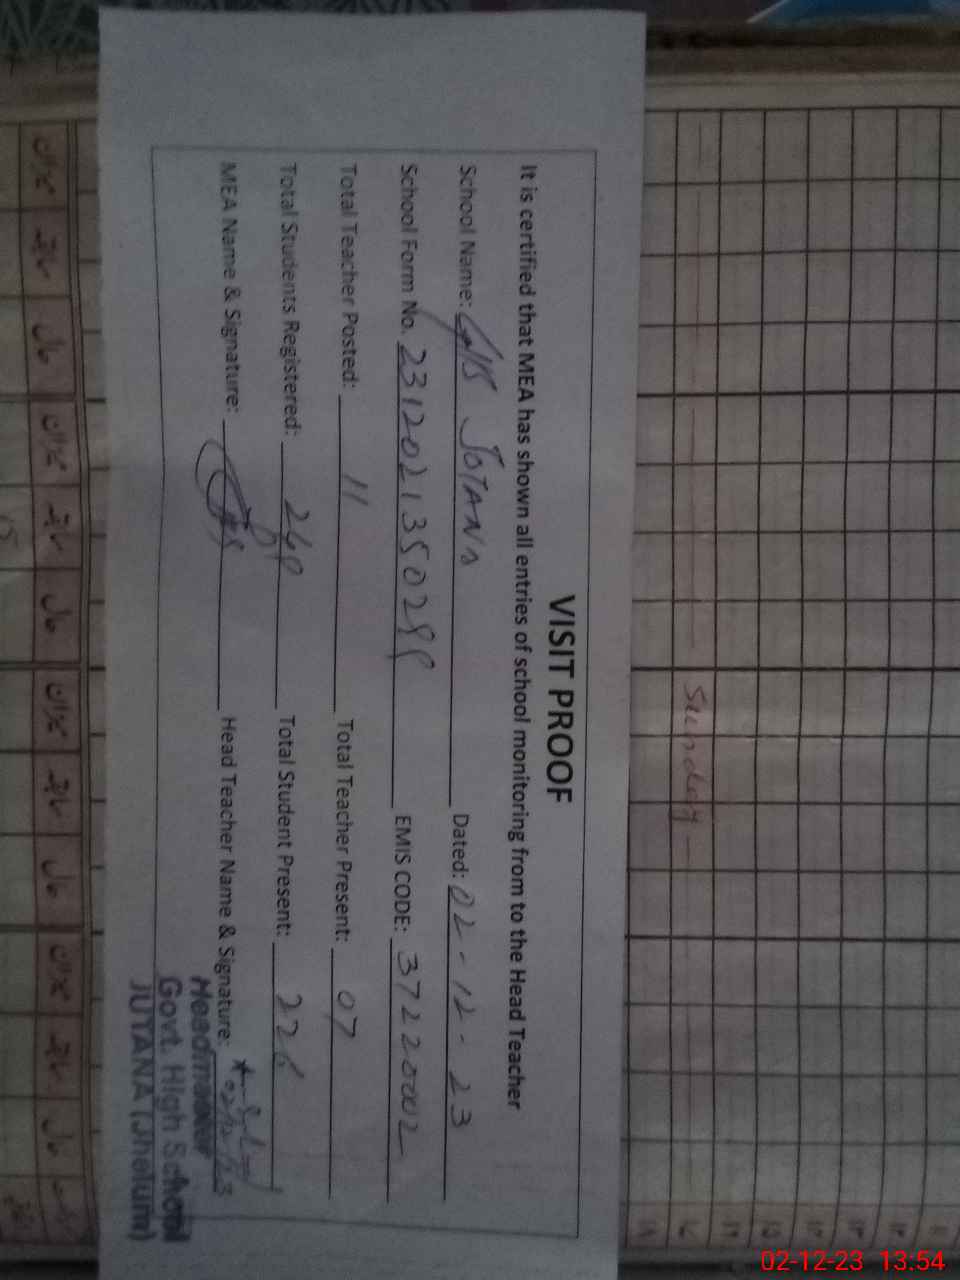 VISIT PROOF
It is certified that MEA has shown all entries of school monitoring from to the Head Teacher
School Name: GHS JOTANA Dated: 02-12-23
School Form No. 231202135029 EMIS CODE: 37220002
Total Teacher Posted: 11 Total Teacher Present: 07
Total Students Registered: 249 Total Student Present: 226
MEA Name & Signature: Head Teacher Name & Signature:
02/12/23
Headmaster
Govt. High School
JUTANA (Jhelum)
Sunday
میزان
سابقہ
حال
میزان
سابقہ
حال
میزان
سابقہ
حال
میزان
سابقہ
حال
15
02-12-23 13:54